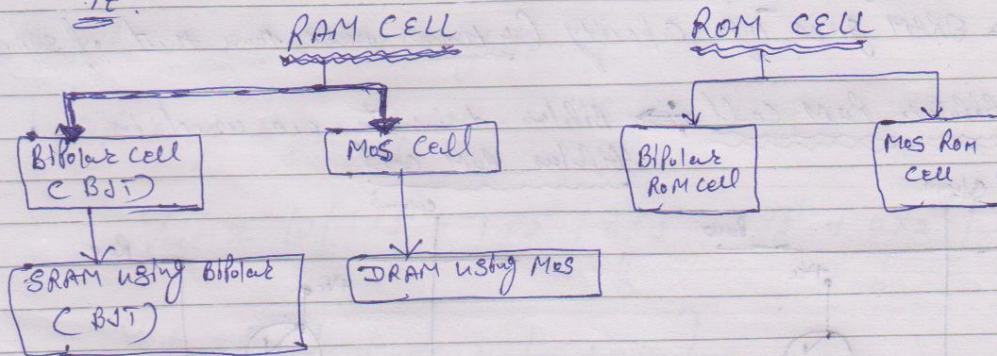 it.
RAM CELL
ROM CELL
Bipolar cell
(BJT)
MOS Cell
Bipolar
ROM cell
MOS ROM
CELL
SRAM using Bipolar
(BJT)
DRAM using MOS